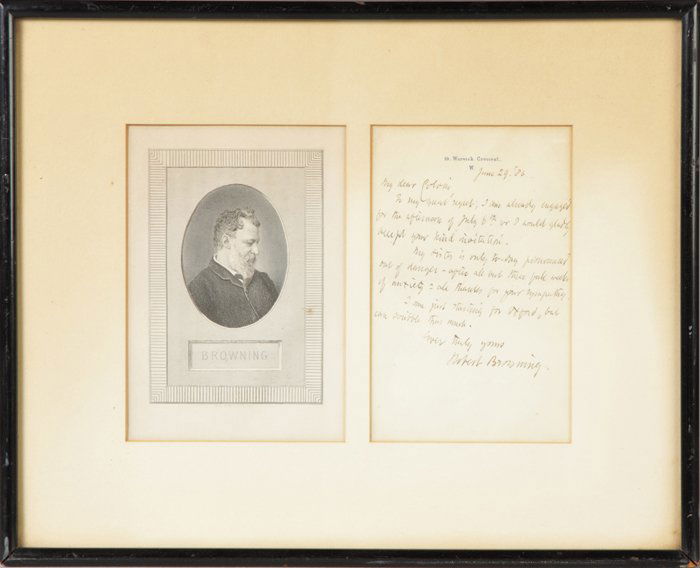 BROWNING
19. Warwick Crescent,
W.
June 29. '86.
My dear Colvin,
To my great regret, I am already engaged
for the afternoon of July 6th or I would gladly
accept your kind invitation.
My sister is only to-day pronounced
out of danger - after all but three full weeks
of anxiety : all thanks for your sympathy
I am just starting for Oxford, but
can scribble thus much.
Ever truly yours
Robert Browning.